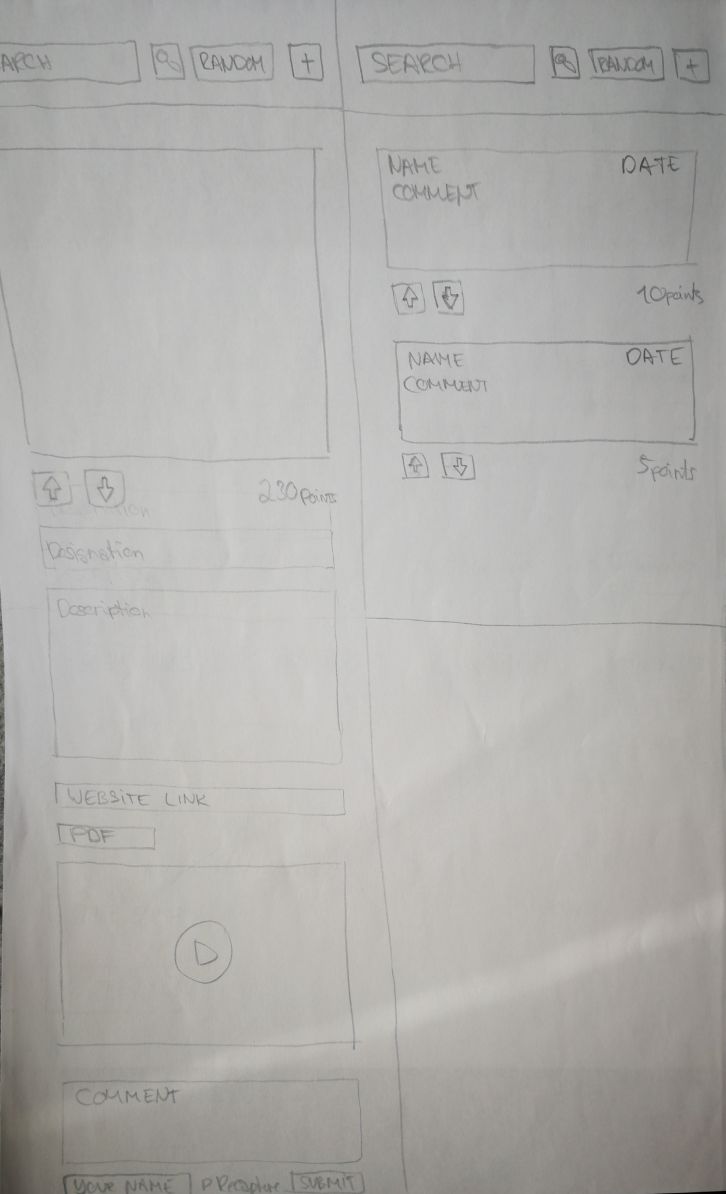 ARCH RANDOM +
230points
Designation
Description
WEBSITE LINK
PDF
COMMENT
YOUR NAME Recapture SUBMIT
SEARCH RANDOM +
NAME DATE
COMMENT
10points
NAME DATE
COMMENT
5points